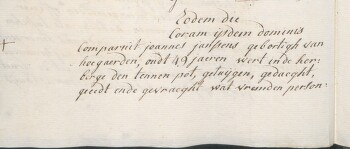 Eodem die
Coram ijsdem dominis
Comparuit joannes janssens gebortigh van
hoegaerden, oudt 49 jaeren wert in de her-
berge den tennen pot, getuijgen, gedaeght,
geedt ende gevraeght wat vremden person-